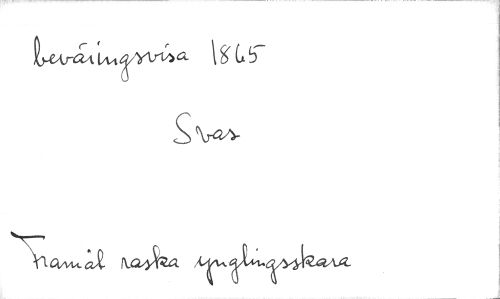 beväringsvisa 1865
Svas
Framåt raska ynglingsskara